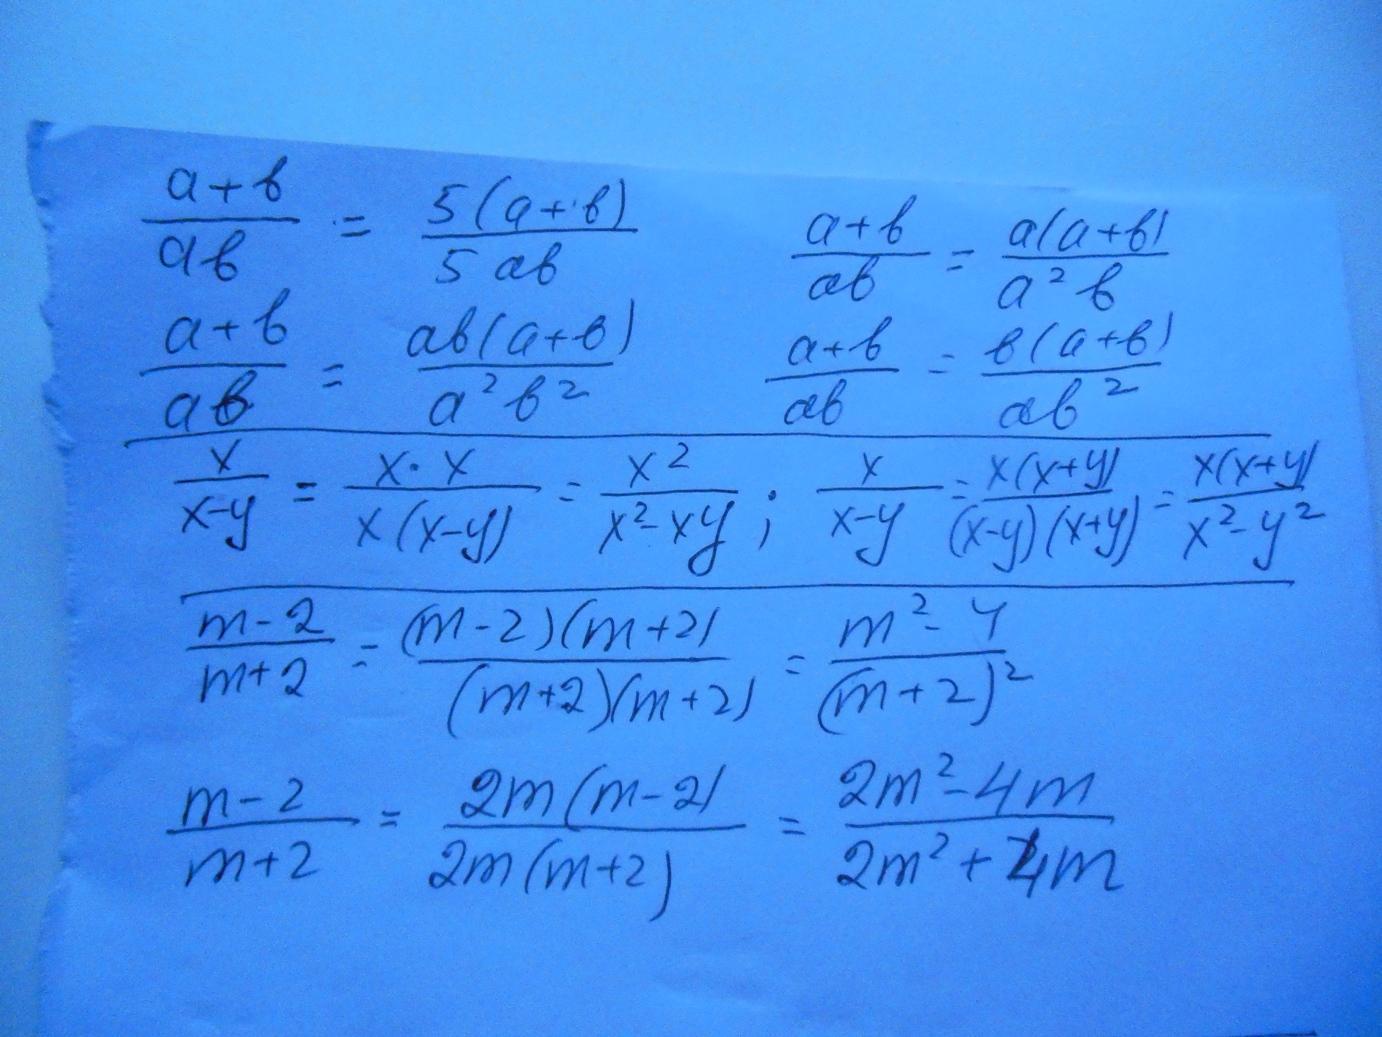 (a+b)/(ab) = 5(a+b)/(5ab)    (a+b)/(ab) = a(a+b)/(a²b)
(a+b)/(ab) = ab(a+b)/(a²b²)    (a+b)/(ab) = b(a+b)/(ab²)
x/(x-y) = x·x/(x(x-y)) = x²/(x²-xy); x/(x-y) = x(x+y)/((x-y)(x+y)) = x(x+y)/(x²-y²)
(m-2)/(m+2) = (m-2)(m+2)/((m+2)(m+2)) = (m²-4)/(m+2)²
(m-2)/(m+2) = 2m(m-2)/(2m(m+2)) = (2m²-4m)/(2m²+4m)